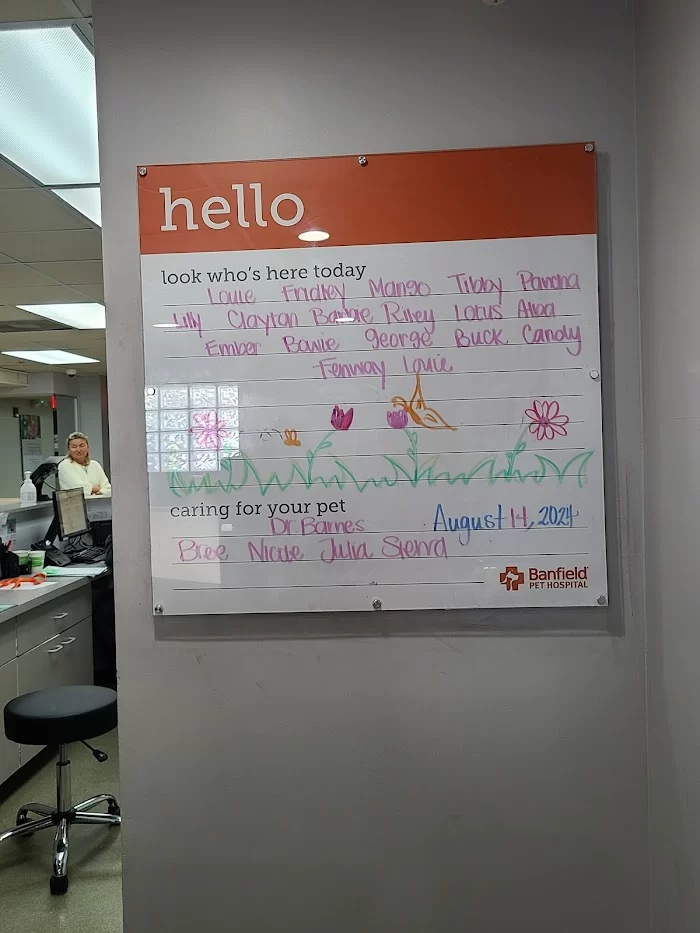 hello
look who's here today
Louie Fridley Mango Tibby
Lilly Clayton Bowie Riley Lotus
Ember Bowie George Buck Candy
Fenway Louie
caring for your pet
Dr. Barnes August 14, 2024
Bree Nicole Julia Sierra
Banfield
PET HOSPITAL